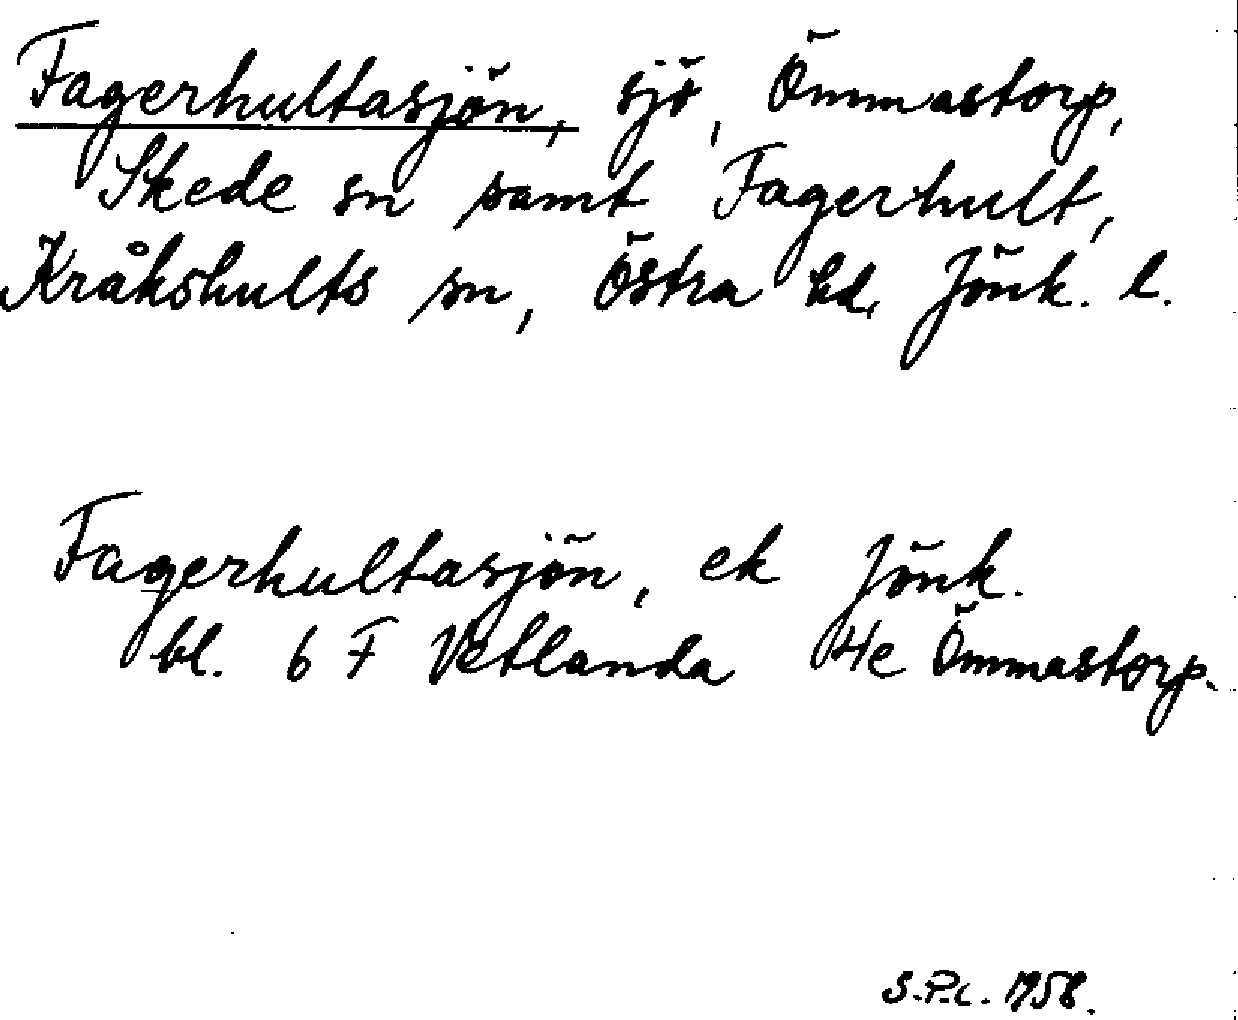 Fagerhultasjön, sjö, Ömmastorp,
Skede sn samt Fagerhult,
Kråkshults sn, Östra hd, Jönk. l.
Fagerhultasjön, ek Jönk.
bl. 6 F Vetlanda 4e Ömmastorp.
S.P.L. 1958.